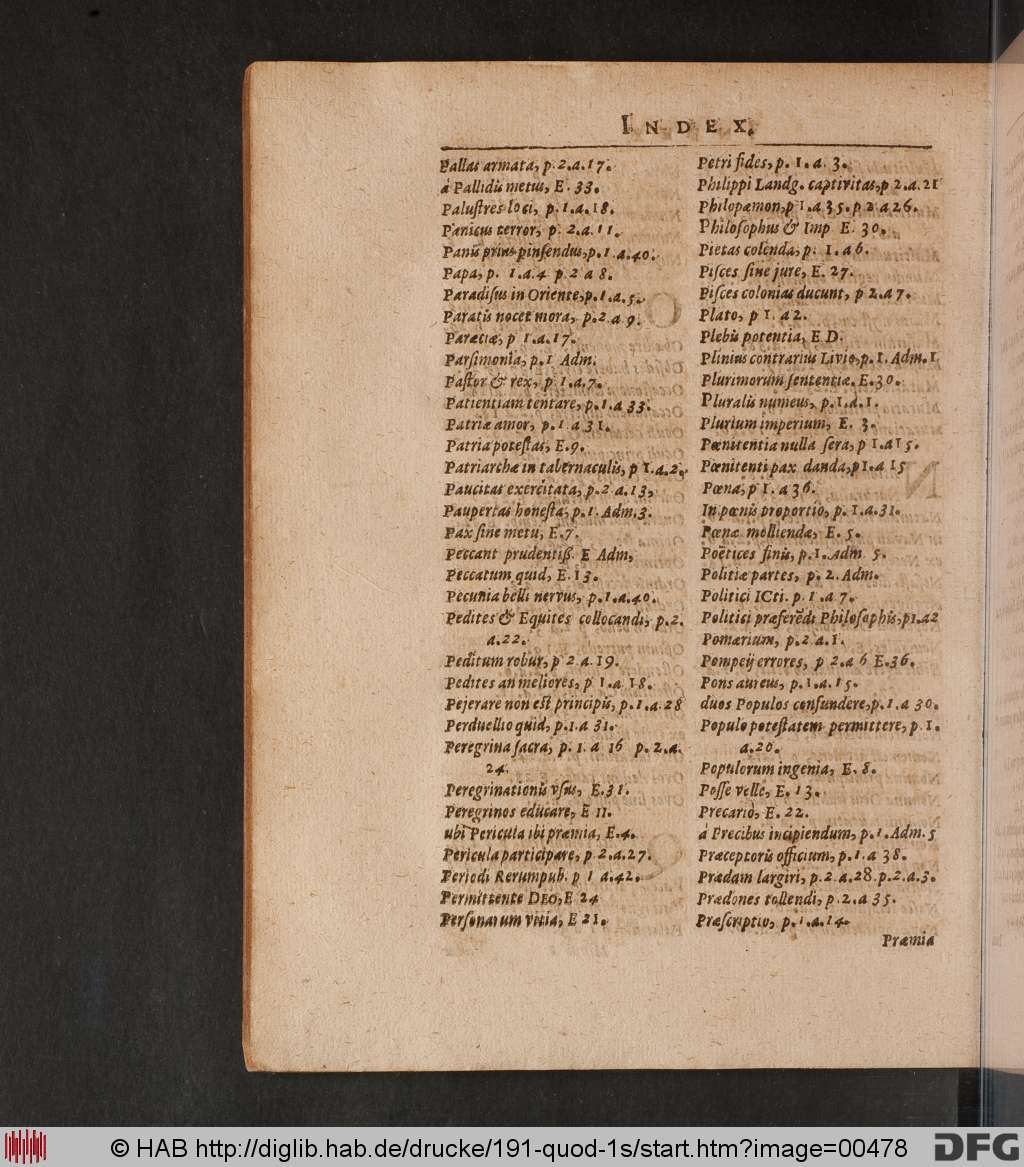 INDEX.
Pallas armata, p. 2. a. 17.
à Pallidis metus, E. 33.
Paluſtres loci, p. 1. a. 18.
Panicus terror, p. 2. a. 11.
Panis prius pinſendus, p. 1. a. 40.
Papa, p. 1. a. 4 p 2 a 8.
Paradiſus in Oriente, p. 1. a. 5.
Paratis nocet mora, p. 2 a 9.
Paræciæ, p 1. a. 17.
Parſimonia, p. 1 Adm.
Paſtor & rex, p 1. a. 7.
Patientiam tentare, p. 1. a 33.
Patriæ amor, p. 1 a 31.
Patria poteſtas, E. 9.
Patriarchæ in tabernaculis, p 1. a. 2.
Paucitas exercitata, p. 2 a. 13,
Paupertas honeſta, p. 1. Adm. 3.
Pax ſine metu, E. 7.
Peccant prudentiſſ. E Adm,
Peccatum quid, E. 13.
Pecunia belli nervus, p. 1. a. 40.
Pedites & Equites collocandi, p. 2.
a. 22.
Peditum robur, p 2 a. 19.
Pedites an meliores, p 1. a 18.
Pejerare non eſt principis, p. 1. a. 28
Perduellio quid, p. 1. a 31.
Peregrina ſacra, p. 1. a 16 p. 2. a.
24.
Peregrinationis vſus, E. 31.
Peregrinos educare, E 11.
ubi Pericula ibi præmia, E. 4.
Pericula participare, p 2. a. 27.
Periodi Rerumpub. p 1 a. 42.
Permittente DEO, E 24
Perſonarum vitia, E 21.
Petri fides, p. 1. a 3.
Philippi Landg. captivitas, p 2. a. 21
Philopæmon, p 1. a 35. p 2 a 26.
Philoſophus & Imp E. 30.
Pietas colenda, p. 1. a 6.
Piſces ſine jure, E. 27.
Piſces colonias ducunt, p 2. a 7.
Plato, p 1. a 2.
Plebis potentia, E D.
Plinius contrarius Livio, p. 1. Adm. 1
Plurimorum ſententiæ. E. 30.
Pluralis numeus, p. 1. a. 1.
Plurium imperium, E. 3.
Pœnitentia nulla ſera, p 1. a 15.
Pœnitenti pax danda, p 1. a 15
Pœna, p 1. a 36.
In pœnis proportio, p. 1. a. 31.
Pœnæ molliendæ, E. 5.
Poëtices finis, p. 1. Adm 5.
Politiæ partes, p. 2. Adm.
Politici ICti. p. 1. a 7.
Politici præferẽdi Philoſophis, p 1. a 2
Pomærium, p. 2 a. 1.
Pompeij errores, p 2. a 6 E. 36.
Pons aureus, p. 1. a. 15.
duos Populos confundere, p. 1. a 30.
Populo poteſtatem permittere, p 1.
a. 20.
Populorum ingenia, E. 8.
Poſſe velle, E. 13.
Precariò, E. 22.
à Precibus incipiendum, p. 1. Adm. 5
Præceptoris officium, p. 1. a 38.
Prædam largiri, p. 2 a. 28. p. 2. a. 3.
Prædones tollendi, p 2. a 35.
Præſcriptio, p. 1. a. 14.
Præmia
© HAB http://diglib.hab.de/drucke/191-quod-1s/start.htm?image=00478
DFG